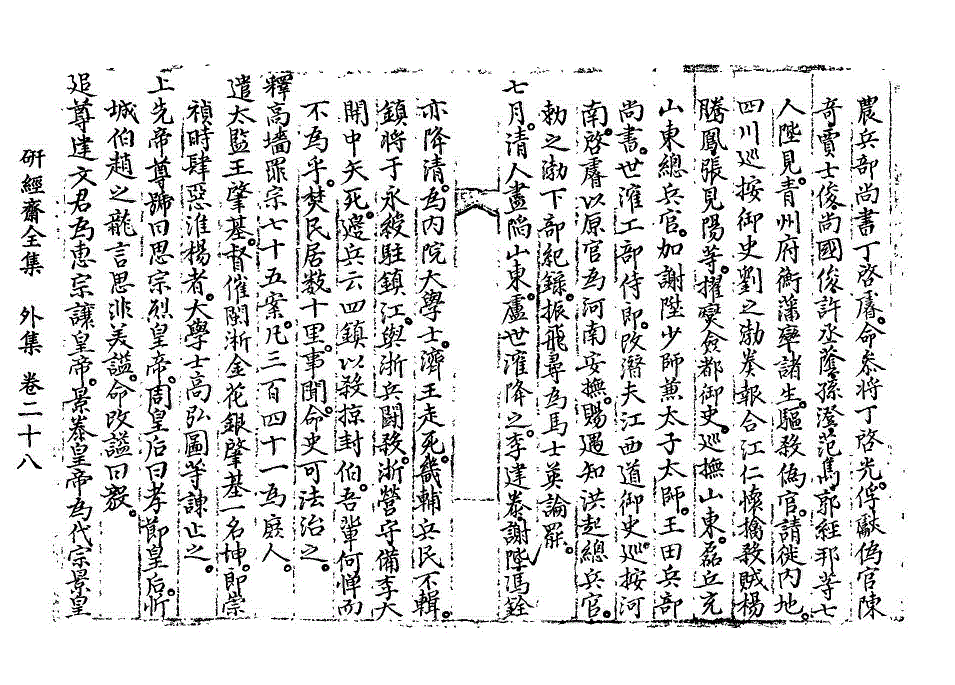 農兵部尚書丁啓睿命叅將丁啓光俘獻僞官陳
奇賈士俊尚國俊許丞蔭孫澄范雋郭經邦等七
人陛見青州府衡藩率諸生驅殺僞官請徙內地
四川巡按御史劉之渤奏報合江仁懷擒殺賊楊
騰鳳張見陽等擢僉都御史巡撫山東磊丘充
山東總兵官加謝陞少師兼太子太師王田兵部
尚書世㴶工部侍郎改潛夫江西道御史巡按河
南啓睿以原官為河南安撫賜過知洪起總兵官
勅之渤下部紀錄振飛尋為馬士英論罷
七月清人盡陷山東盧世㴶降之李建泰謝陞馮銓
亦降清為內院大學士濟王走死畿輔兵民不輯
鎮將于永綬駐鎮江與浙兵鬪殺浙營守備李大
開中矢死邊兵云四鎮以殺掠封伯吾輩何憚而
不為乎焚民居數十里事聞命史可法治之
釋高墻罪宗七十五案凡三百四十一為庶人
遣太監王肇基督催閩浙金花銀肇基一名坤即崇
禎時肆惡淮楊者大學士高弘圖等諫止之
上先帝尊號曰思宗烈皇帝周皇后曰孝節皇后忻
城伯趙之龍言思非美謚命改謚曰毅
追尊建文君為惠宗讓皇帝景泰皇帝為代宗景皇
研經齋全集　外集　卷二十八